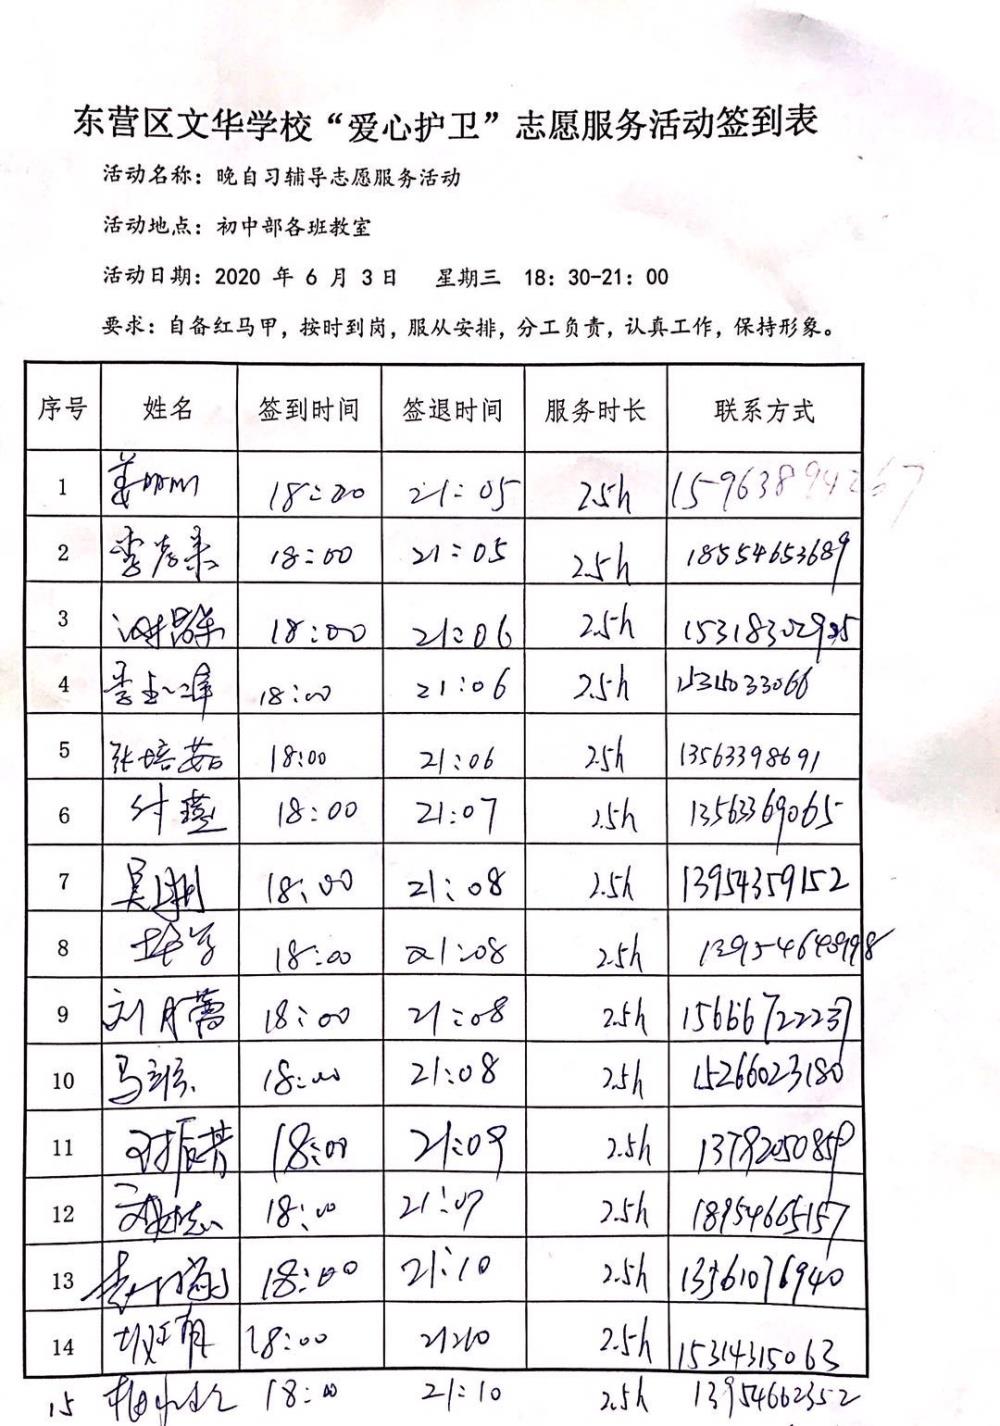 东营区文华学校“爱心护卫”志愿服务活动签到表
活动名称：晚自习辅导志愿服务活动
活动地点：初中部各班教室
活动日期：2020 年 6 月 3 日 星期三 18：30-21：00
要求：自备红马甲，按时到岗，服从安排，分工负责，认真工作，保持形象。
序号 姓名 签到时间 签退时间 服务时长 联系方式
1 21:05 2.5h 15963894267
2 18:00 21:05 2.5h 18554653689
3 18:00 21:06 2.5h
4 18:00 21:06 2.5h
5 张培茹 18:00 21:06 2.5h 13563398691
6 付燕 18:00 21:07 2.5h 13563369065
7 18:00 21:08 2.5h 13954359152
8 18:00 21:08 2.5h
9 18:00 21:08 2.5h 15666722237
10 18:00 21:08 2.5h 15266023180
11 18:00 21:09 2.5h
12 18:00 21:09 2.5h 18954665157
13 18:00 21:10 2.5h 13361076940
14 18:00 2.5h 15314315063
15 18:00 21:10 2.5h 13954662352